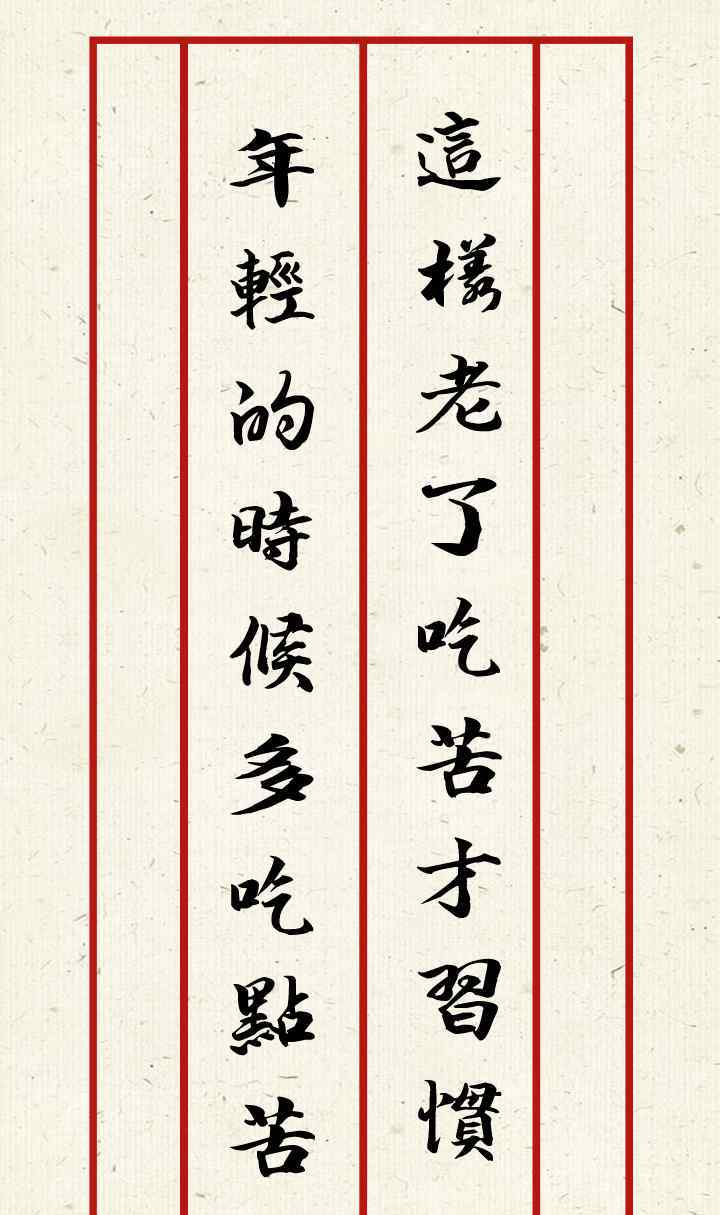 年輕的時候多吃點苦
這樣老了吃苦才習慣